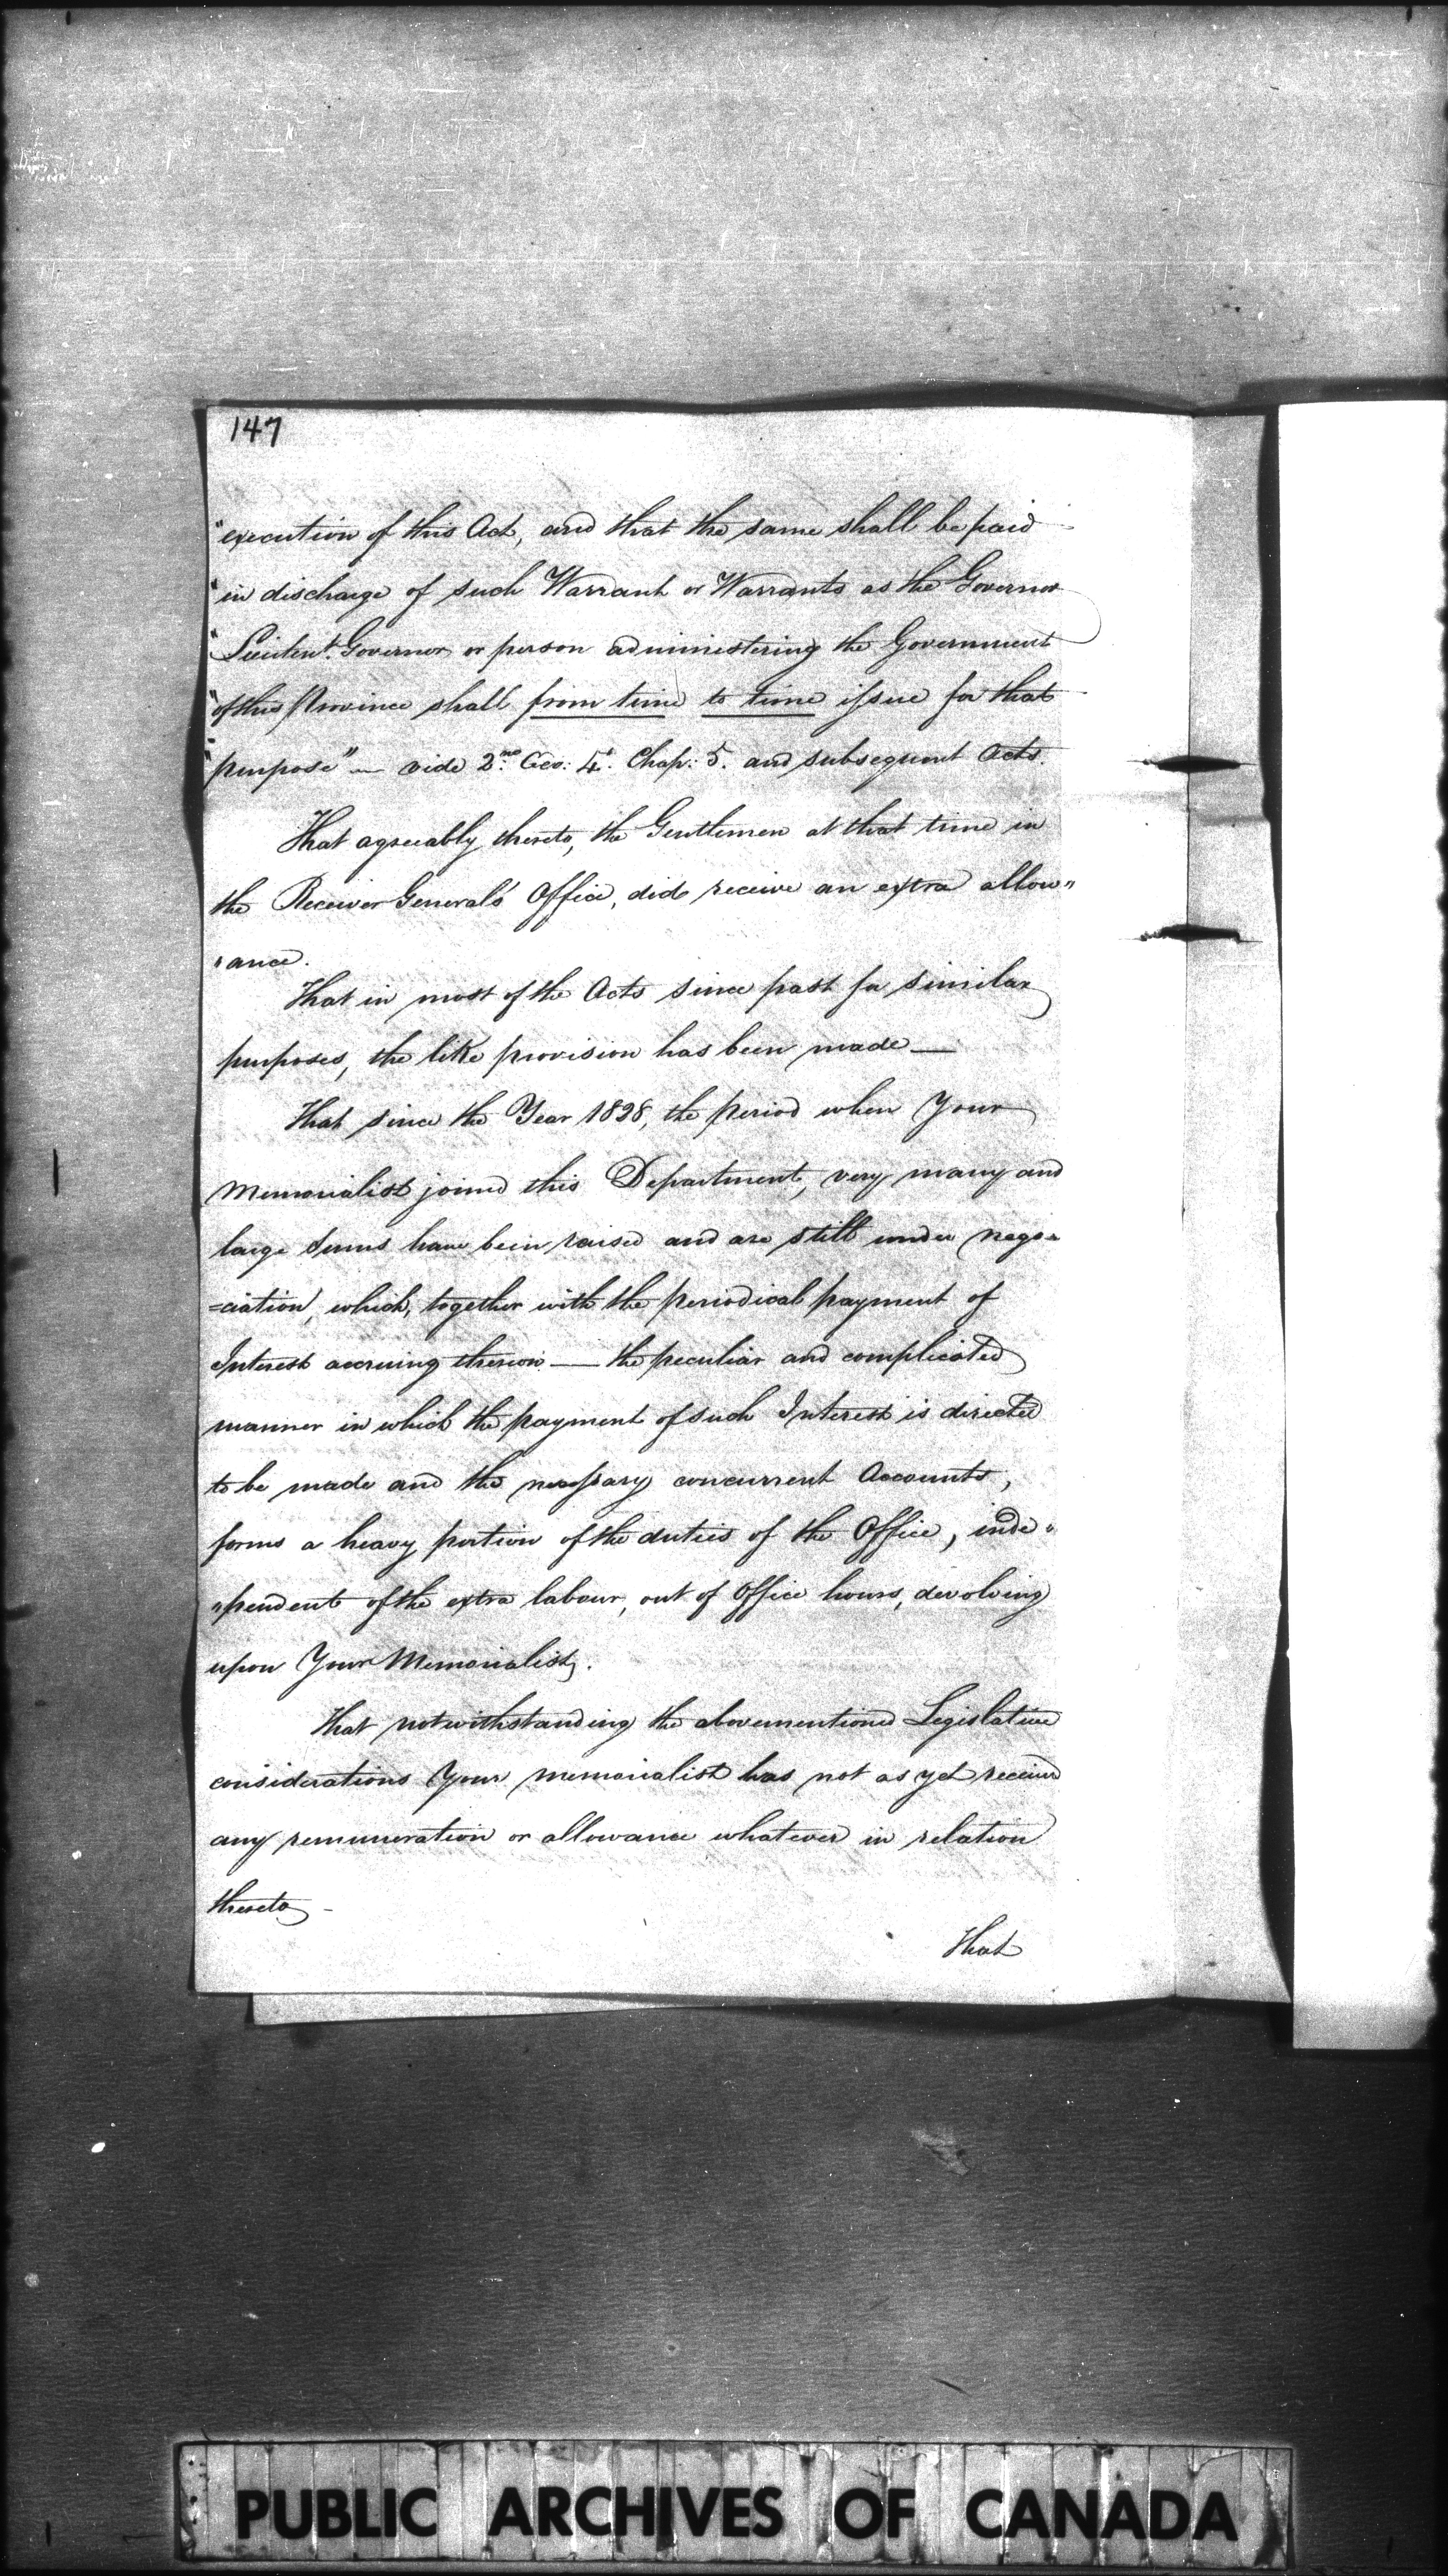 147
"execution of this Act, and that the same shall be paid
"in discharge of such Warrant or Warrants as the Governor
"Lieutent. Governor or person administering the Government
"of this Province shall from time to time issue for that
"purpose" — vide 2nd. Geo: 4th. Chap: 5. and subsequent Acts.
That agreeably thereto, the Gentlemen at that time in
the Receiver General's Office, did receive an extra allow"
"ance.
That in most of the Acts since past for similar
purposes, the like provision has been made —
That since the Year 1828, the period when Your
Memorialist joined this Department, very many and
large sums have been raised and are still under nego=
=ciation, which, together with the periodical payment of
Interest accruing thereon — the peculiar and complicated
manner in which the payment of such Interest is directed
to be made and the necessary concurrent Accounts,
forms a heavy portion of the duties of the Office, inde"
"pendent of the extra labour, out of Office hours, devolving
upon Your Memorialist.
That notwithstanding the abovementioned Legislative
considerations Your memorialist has not as yet received
any remuneration or allowance whatever in relation
thereto -
That
PUBLIC ARCHIVES OF CANADA